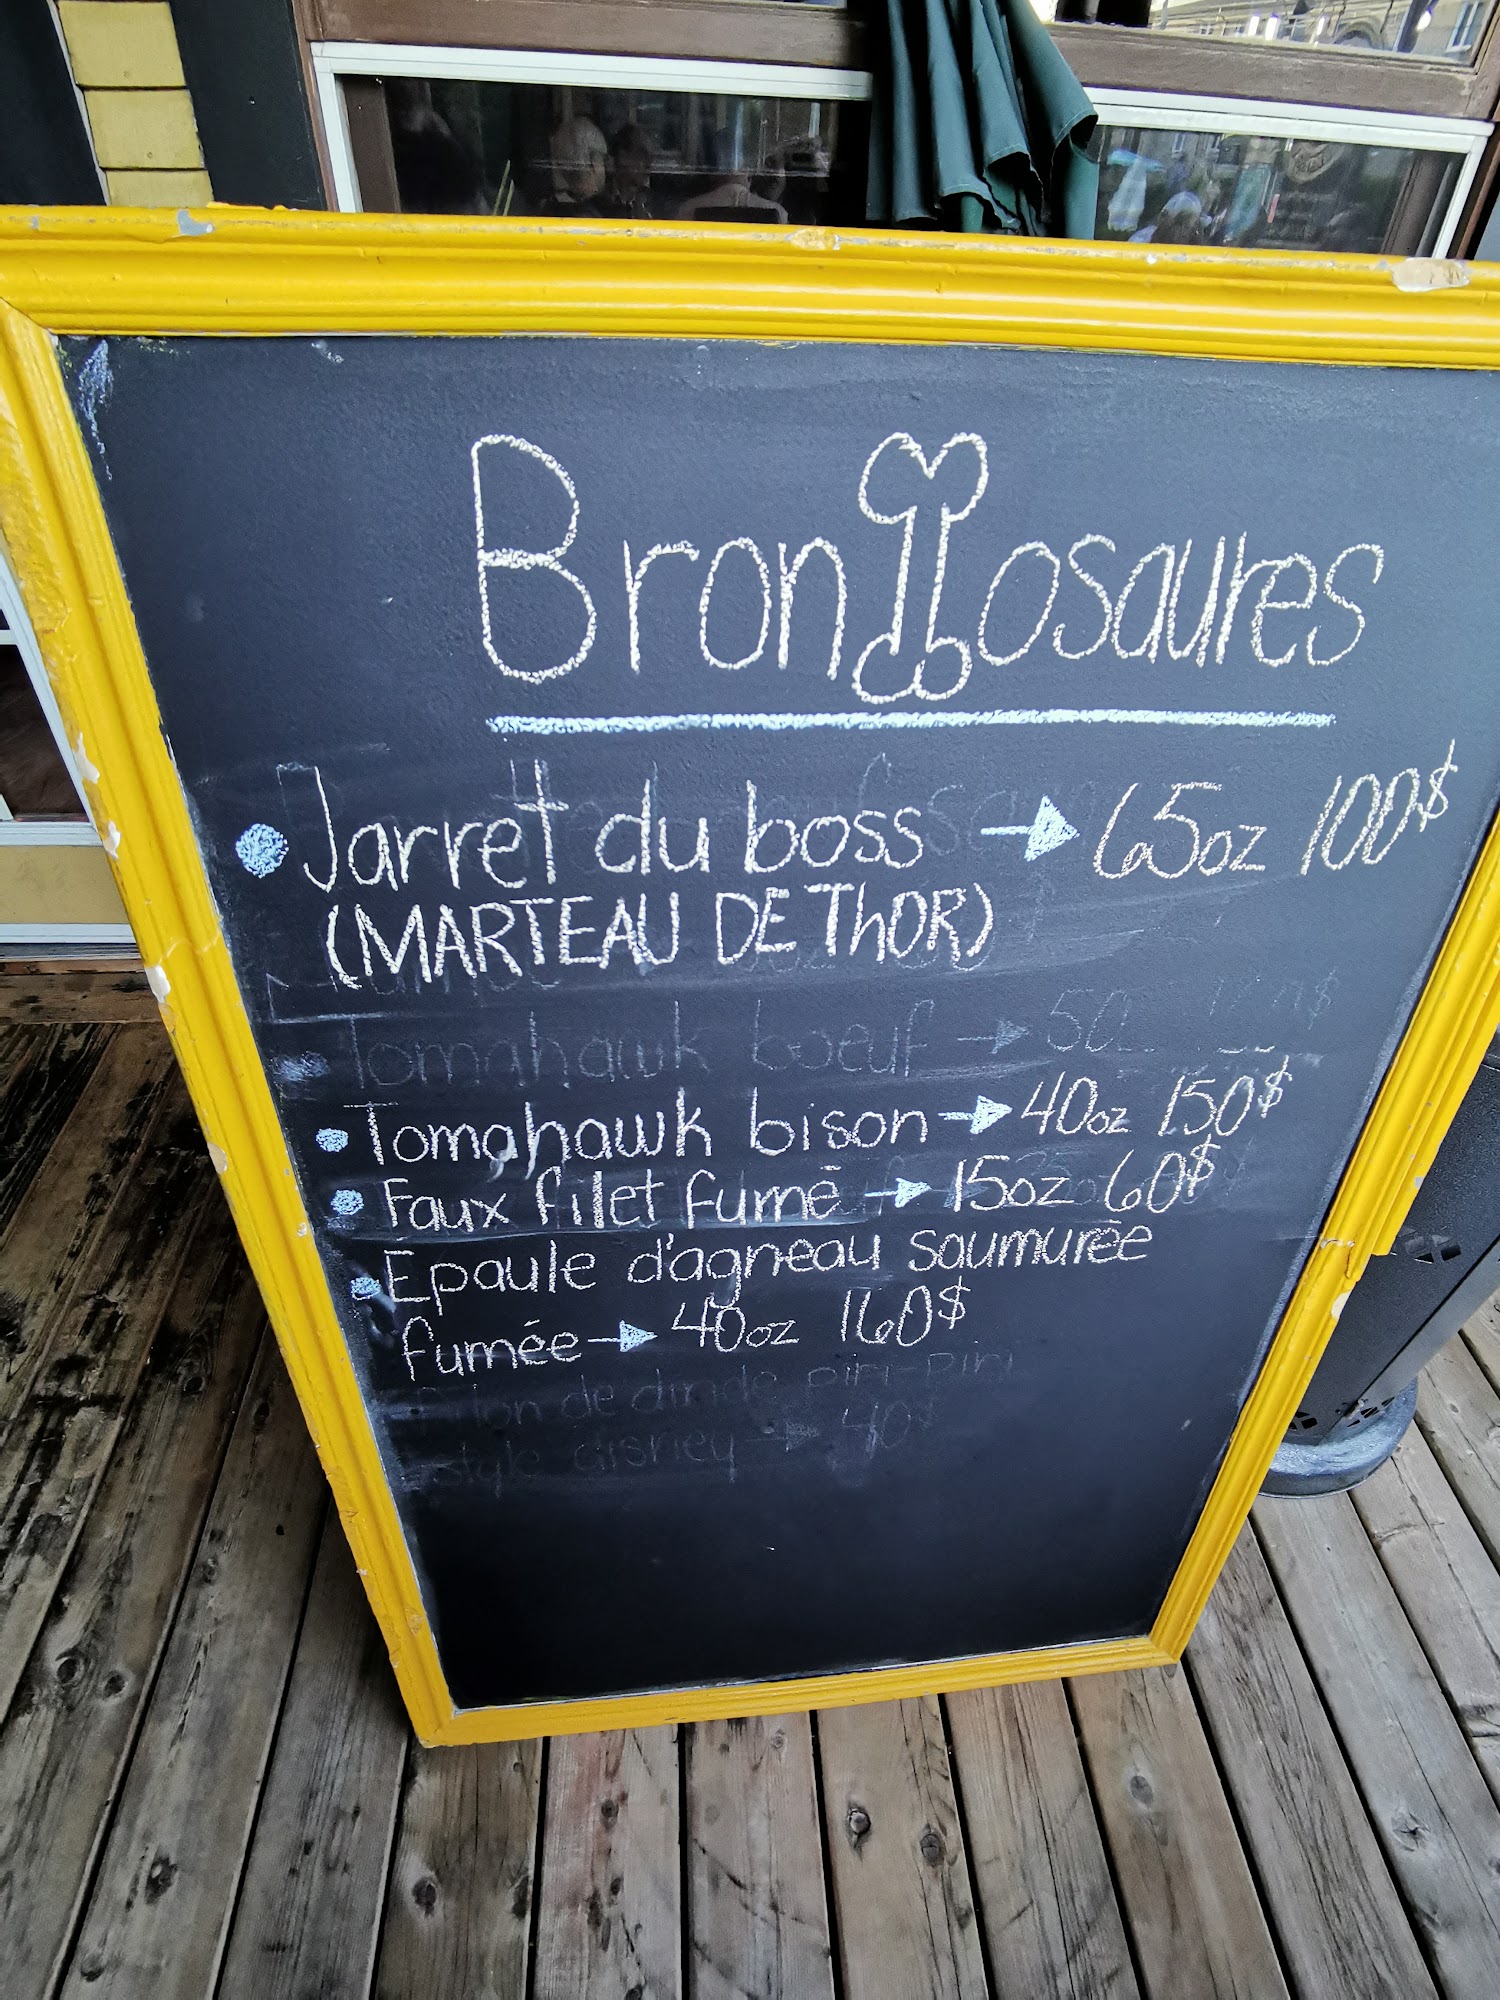 Brontosaures
Jarret du boss → 65oz 100$
(MARTEAU DE ThOR)
Tomahawk boeuf → 50
Tomahawk bison → 40oz 150$
Faux filet fumé → 15oz 60$
Epaule d'agneau saumurée
fumée → 40oz 160$
de dinde PiRi PiRi
style disney → 40$